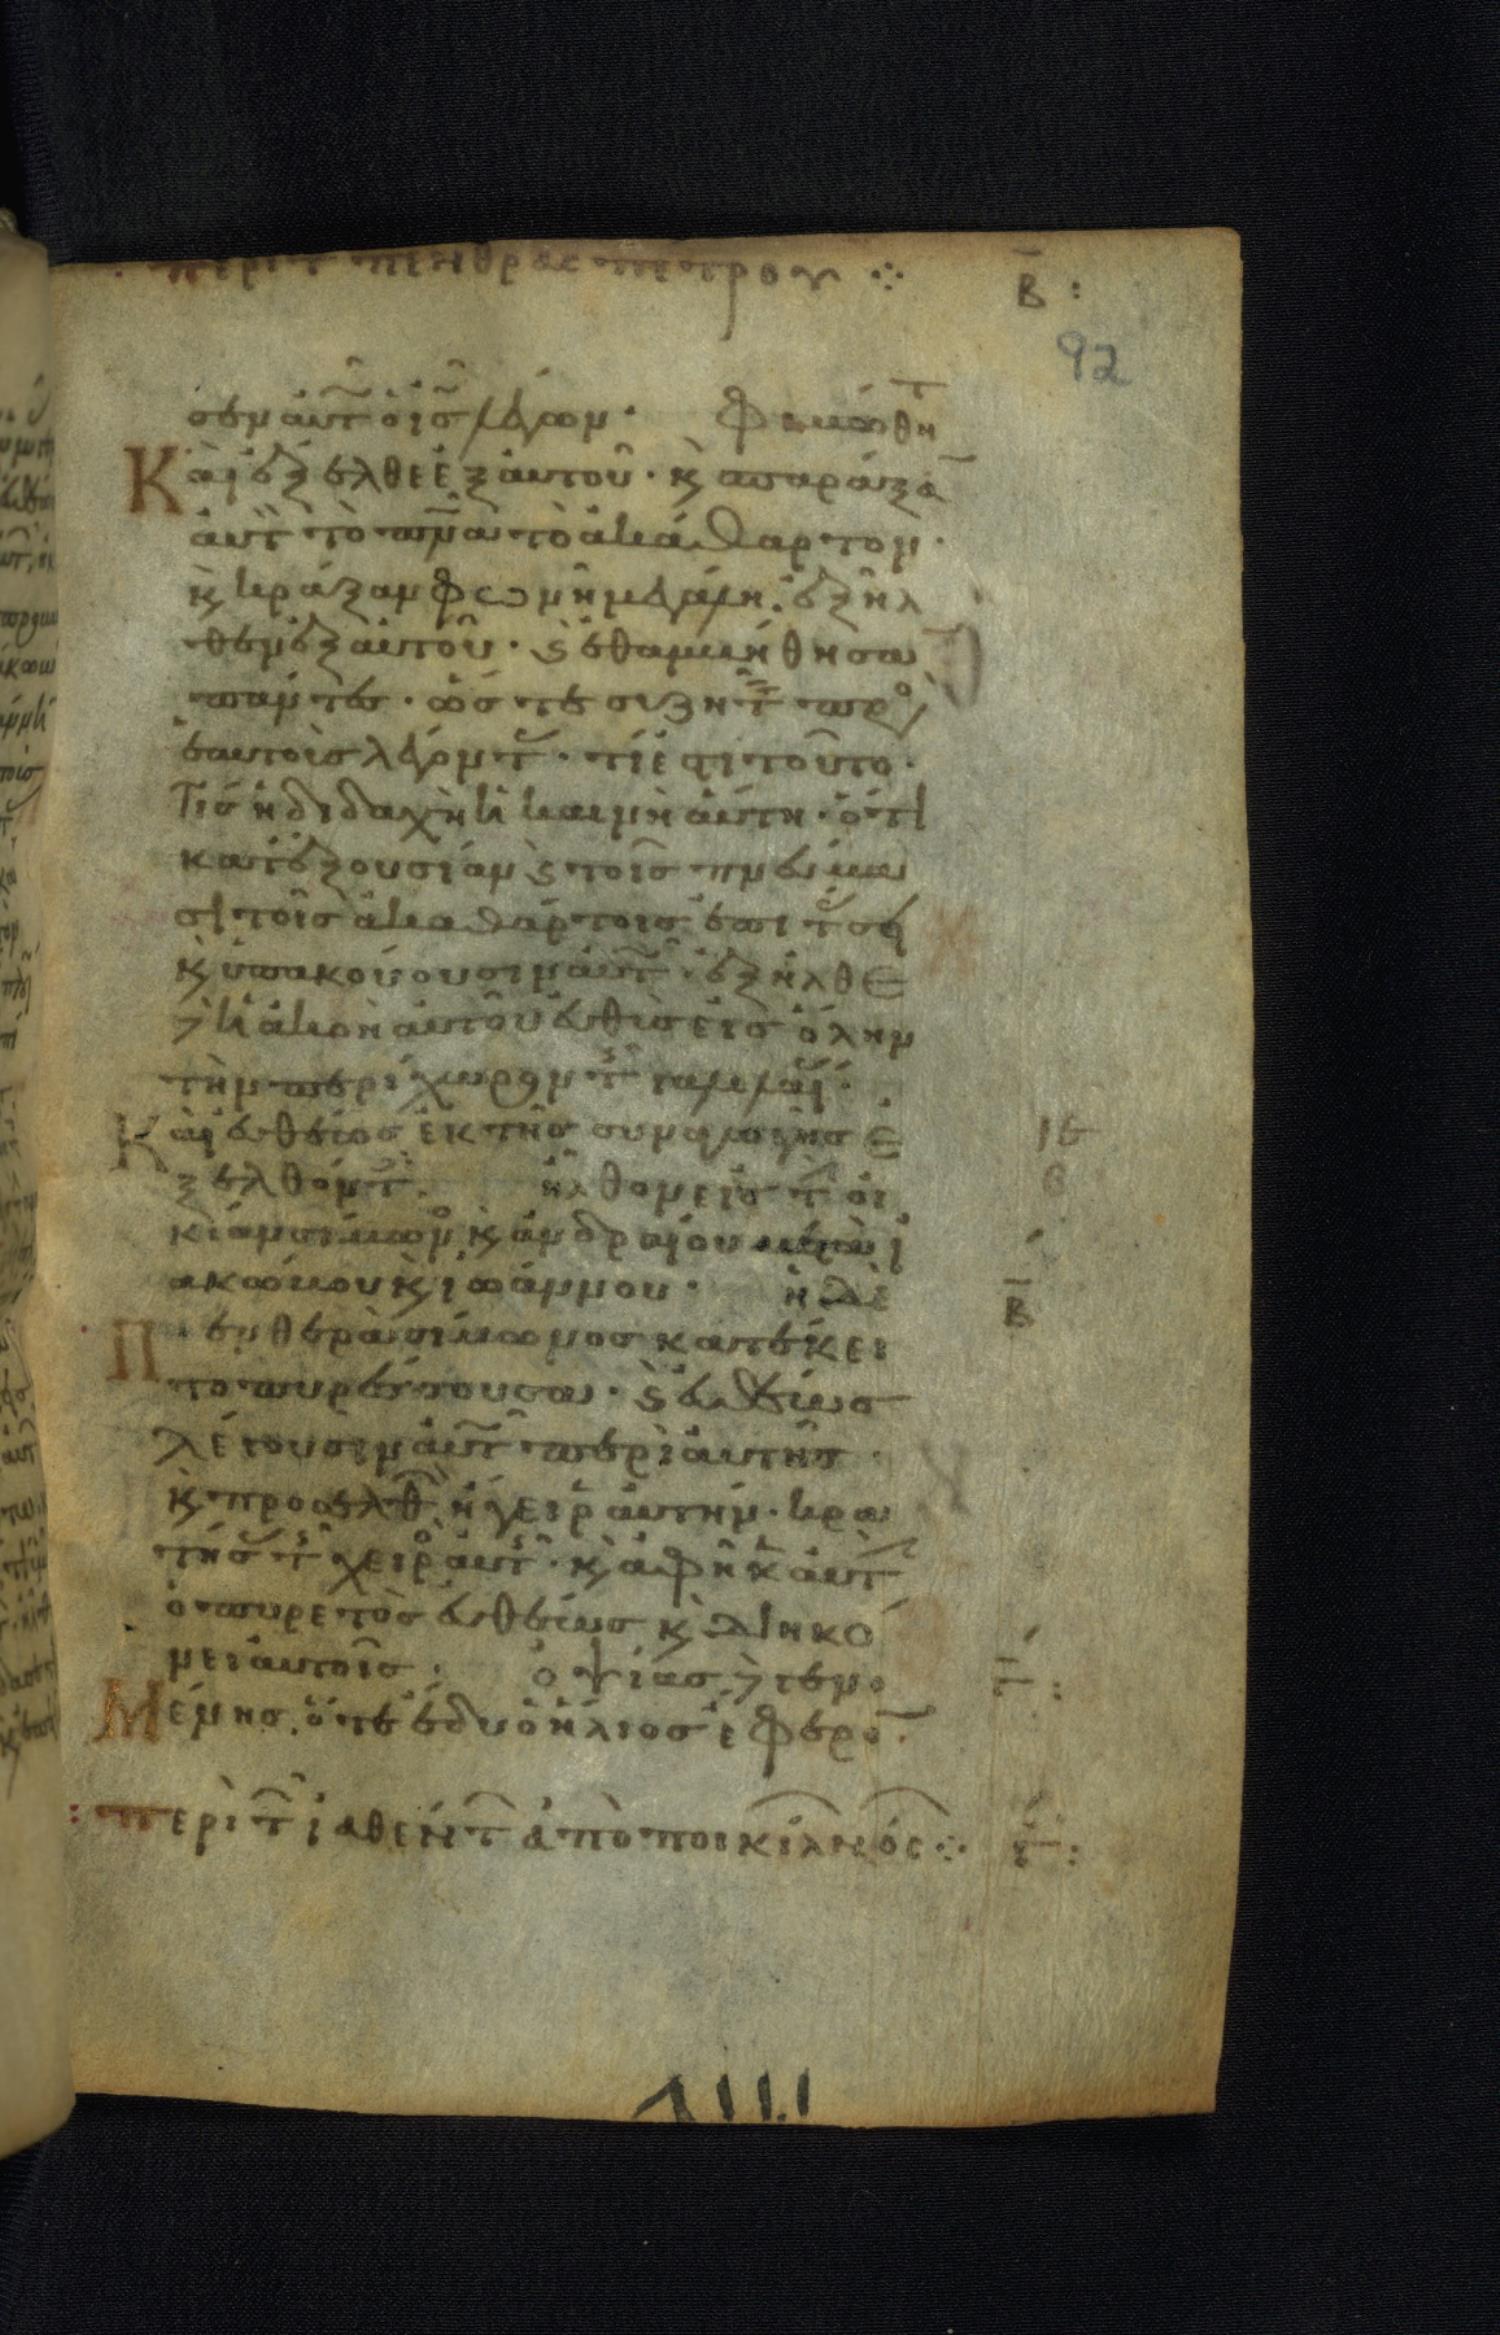 περὶ τ πενθερᾶς πέτρου ⁘ Β :
92
σεν αυτ ὁ ις λέγων· φιμώθητ
Καὶ ἔξελθε ἐξ αυτοῦ· κ σπαράξα
αυτ τὸ πνα τὸ ἀκάθαρτον·
κ κράξαν φωνῆ μεγάλη· ἐξῆλ
θεν ἐξ αυτοῦ· κ ἐθαμβήθησα
πάντες· ὥστε συζητ προ
ἑαυτοὶς λέγοντ· τί ἐστι τοῦτο·
Τίς ἡ διδαχὴ ἡ καινὴ αὕτη· ὅτι
κατ ἐξουσίαν κ τοῖς πνεύμα
σι τοῖς ἀκαθάρτοις ἐπιτάσσει
κ υπακούουσιν αυτ· ἐξῆλθε
δὲ ἡ ἀκοὴ αυτοῦ ευθὺς εἰς ὅλην
τὴν περίχωρον τ γαλιλαί·
Καὶ ευθέως ἐκ τῆς συναγωγῆς ἐ ΙΕ
ξελθόντ· ἦλθον εἰς τ οἰ ϛ
κίαν σίμων κ ἀνδραίου μετὰ ι
ακώβου κ ιωάννου· ἡ δὲ Β
Πενθερὰ σίμωνος κατέκει
το πυρέττουσα· κ ευθέως
λέγουσιν αυτ περὶ αυτῆς·
κ προσελθ ἤγειρ αυτήν· κρα
τήσ τ χειρ αυτ· κ ἀφῆκ αυτ
ὁ πυρετὸς ευθέως κ διηκό
νει αυτοῖς· ὀψίας δὲ γενο Γ :
Μένης· ὅτε ἔδυ ὁ ἥλιος ἔφερο
: περὶ τ ἰαθέντ ἀπὸ ποικίλ νός ⁘ Γ :